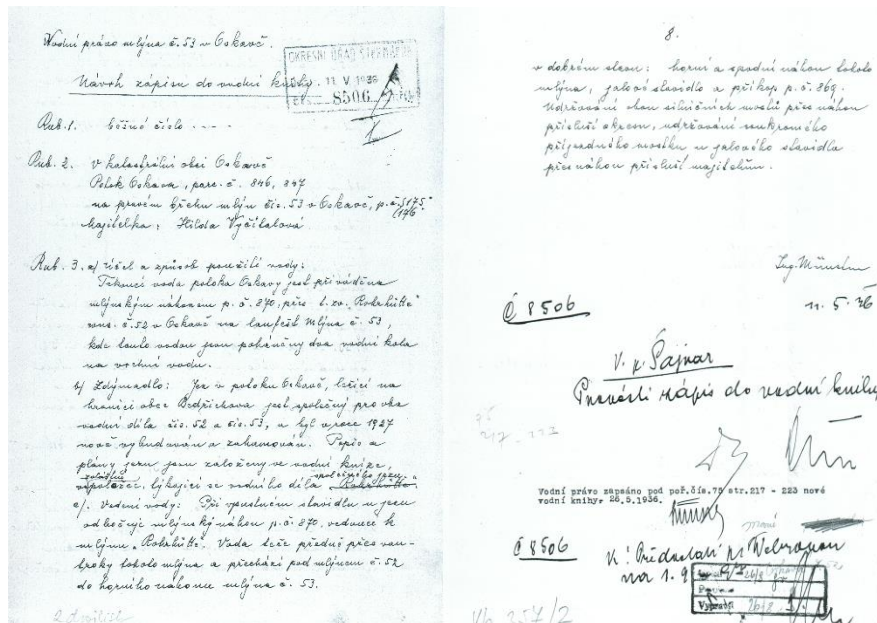 Vodní právo mlýna č. 53 v Oskavě.
OKRESNÍ ÚŘAD
Návrh zápisu do vodní knihy.
11. V 1936
8506
Rub. 1. běžné číslo ....
Rub. 2. v katastrální obci Oskavě
Potok Oskava, parc. č. 846, 847
na pravém břehu mlýn čís. 53 v Oskavě, p. č. 175
176
Majitelka: Hilda Vyčítalová
Rub. 3. a/ účel a způsob použití vody:
Tekoucí voda potoka Oskavy jest přiváděna
mlýnským náhonem p. č. 870, přes t. zv. "Rohrhütte"
č. 52 v Oskavě na mlýna č. 53,
kde touto vodou jsou poháněny dva vodní kola
na vrchní vodu.
b/ Zdýmadlo: Jez v potoku Oskavě, ležící na
hranici obce Bedřichova jest společný pro oba
vodní díla čís. 52 a čís. 53, a byl v roce 1927
nově vybudován a zakamován. Popis a
plány jezu jsou založeny ve vodní knize,
zvláštní společného jezu
týkající se vodního díla "Rohrhütte"
c/. Vedení vody: Při vpustném stavidlu u jezu
odbočuje mlýnský náhon p. č. 870, vedoucí k
mlýnu "Rohrhütte". Voda teče předně přes
tohoto mlýna a přechází pod mlýnem č. 52
do horního náhonu mlýna č. 53.
8.
v dobrém stavu: horní a spodní náhon tohoto
mlýna, jalové stavidlo a příkop p. č. 869.
Udržování obou silničních mostů přes náhon
přísluší okresu, udržování soukromého
příjezdného mostku u jalového stavidla
přes náhon přísluší majitelům.
Ing. Münster
11. 5. 36
Č 8506
V. p. Šajnar
Provésti zápis do vodní knihy
217 - 223
Vodní právo zapsáno pod poř.čís.78 str.217 - 223 nové
vodní knihy. 26.5.1936.
Č 8506
K! Předložiti
na 1. 9
26/8
Vypravil 26/8
257/2